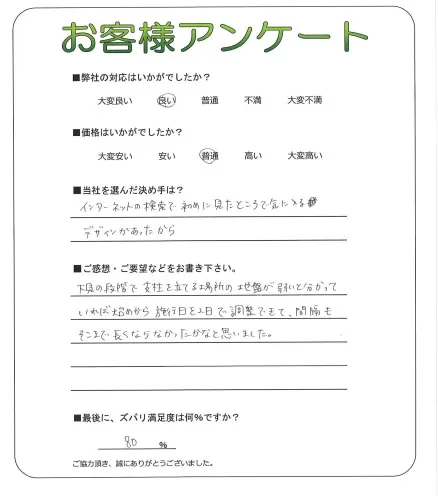 お客様アンケート
■弊社の対応はいかがでしたか？
大変良い 良い 普通 不満 大変不満
■価格はいかがでしたか？
大変安い 安い 普通 高い 大変高い
■当社を選んだ決め手は？
インターネットの検索で初めに見たところで気に入る
デザインがあったから
■ご感想・ご要望などをお書き下さい。
下見の段階で支柱を立てる場所の地盤が弱いと分かって
いれば始めから施行日を2日で調整できて、間隔も
そこまで長くならなかったかなと思いました。
■最後に、ズバリ満足度は何%ですか？
80 %
ご協力頂き、誠にありがとうございました。